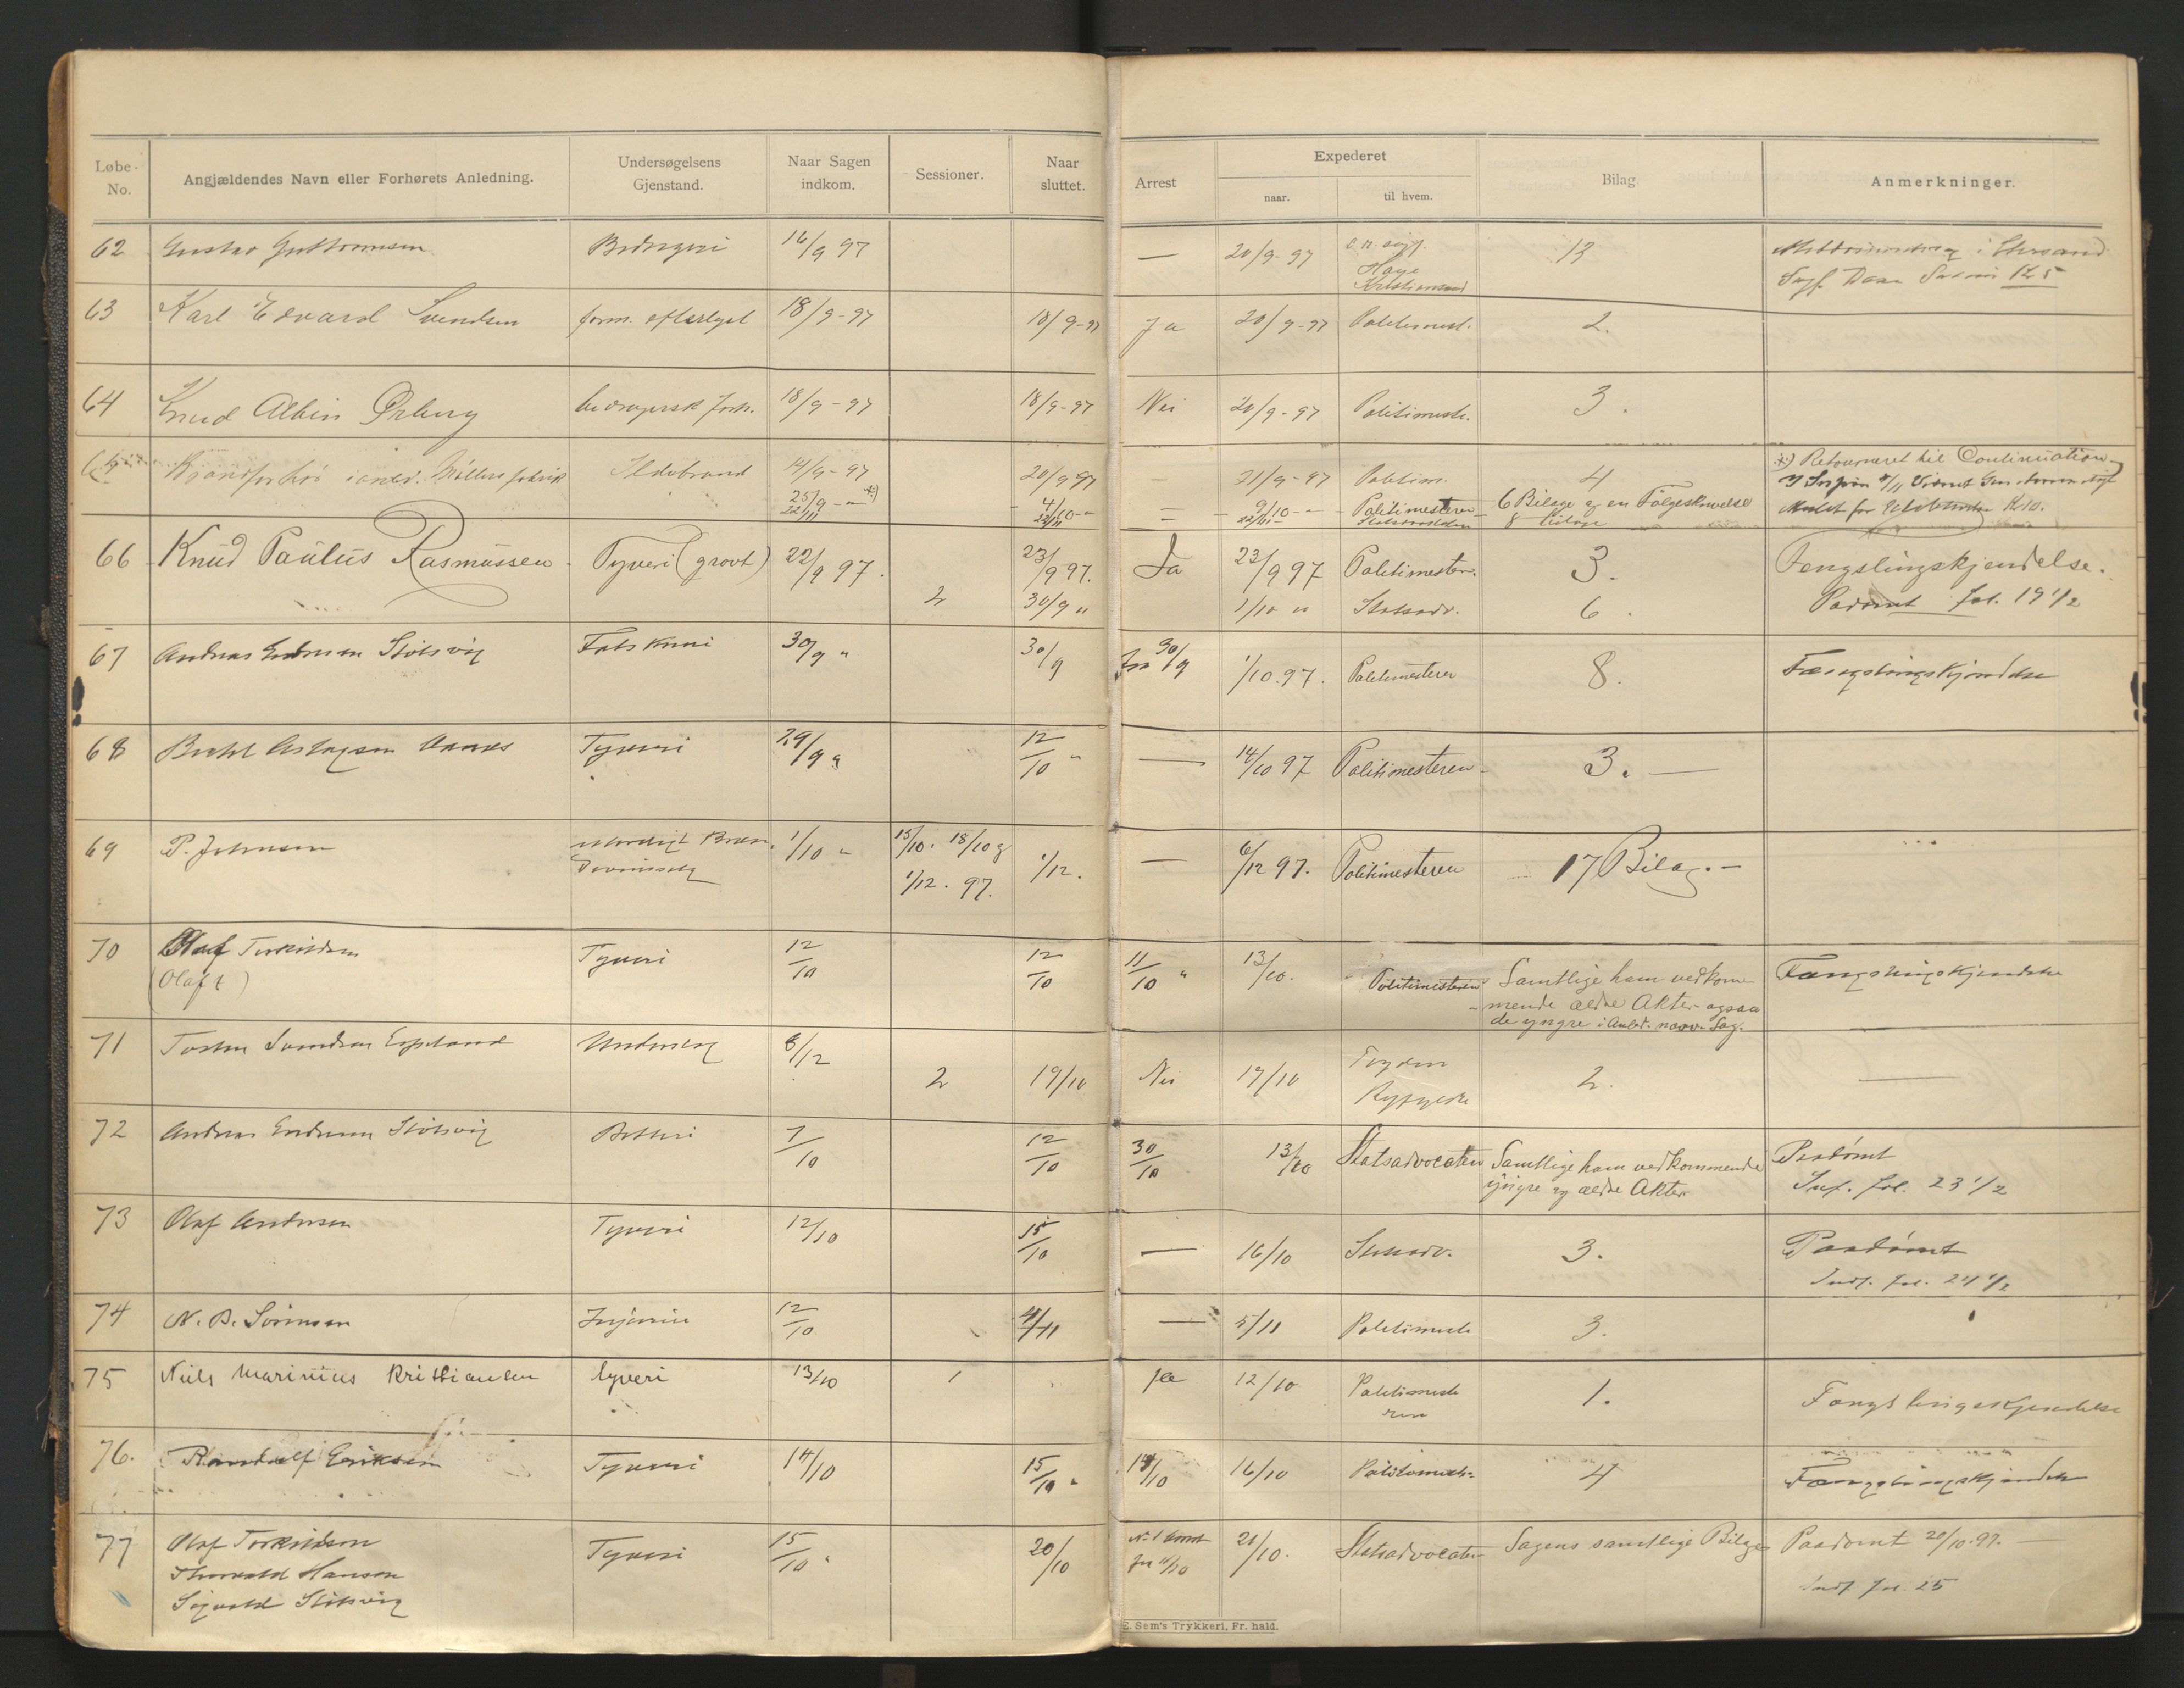 Løbe-No. Angjældendes Navn eller Forhørets Anledning. Undersøgelsens Gjenstand. Naar Sagen indkom. Sessioner. Naar sluttet. Arrest Expederet naar. til hvem. Bilag Anmerkninger.
62 Gustav Guttormsen Bedrageri 16/9 97 — 20/9-97 Kristiansand 13
63 Karl Edvard Svendsen form. efterlyst 18/9-97 18/9-97 Ja 20/9-97 Politimest. 2.
64 Knud Albin Ørberg bedragersk Forh. 18/9-97 18/9-97 Nei 20/9-97 Politimestr. 3.
Brandforhør i anled. Møllers fabrik Ildebrand 14/9-97 20/9 97 — 21/9-97 Politim. 4 *) Retourneret til Continuation
25/9 - *) 4/10 9/10 Politimesteren 6 Bilage og en Følgeskrivelse
22/11 22/11 8 bilage
66 Knud Paulus Rasmussen Tyveri (grovt) 22/9 97. 23/9 97. Ja 23/9 97 Politimesteren. 3. Fengslingskjendelse.
2 30/9 " 1/10 " Statsadv. 6. Paadømt fol. 19 1/2
67 Andreas Endresen Stölsvig Falskneri 30/9 " 30/9 Fra 30/9 1/10.97. Politimesteren 8. Fængslingskjendelse
68 Bertel Aslagsen Aanes Tyveri 29/9 " 12/10 " — 14/10 97 Politimesteren 3. —
69 P. Johnsen ulovligt Bræn- 1/10 " 15/10. 18/10 og 1/12. — 6/12 97. Politimesteren 17 Bilag. —
1/12. 97.
70 Olaf Torkildsen Tyveri 12/10 12/10 11/10 " 13/10. Politimesteren Samtlige ham vedkom- Fængslingskjendelse
(Olaf t) mende ældre Akter - ogsaa
de yngre i Anled. nærv. Sag.
71 Tosten Svendsen Espeland Underslag 8/12 2 19/10 Nei 19/10 Fogden 2. —
Ryfylke
72 Andreas Endresen Stölsvig Betleri 7/10 12/10 30/10 13/10 Statsadvocaten Samtlige ham vedkommende Paadømt
yngre og ældre Akter Inf. fol. 23 1/2
73 Olaf Andersen Tyveri 12/10 15/10 — 16/10 Statsadv. 3. Paadømt
Indf. fol. 24 1/2
74 N. B. Sörensen Injurie 12/10 4/11 — 5/11 Politimest. 3.
75 Niels Marinius Kristiansen tyveri 13/10 1 Ja 12/10 Politimeste- 1. Fængslingskjendelse
ren
76. Randulf Eriksen Tyveri 14/10 15/10 " 14/10 16/10 Politimest. 4 Fængslingskjendelse
77 Olaf Torkildsen Tyveri 15/10 " 20/10 No 1 Arrest 21/10. Statsadvocaten Sagens samtlige Bilage Paadømt 20/10.97. —
Thorvald Hansen fra 11/10
Sigvald Stölsvig Indf. fol. 25
E. Sem's Trykkeri, Fr. hald.